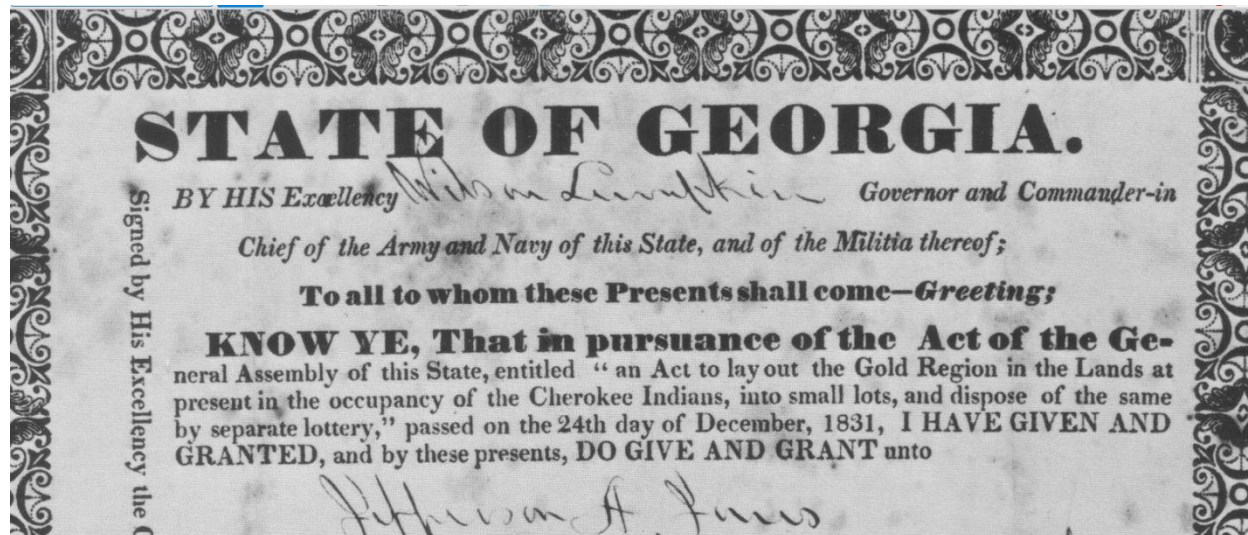 STATE OF GEORGIA.
BY HIS Excellency Wilson Lumpkin Governor and Commander-in
Chief of the Army and Navy of this State, and of the Militia thereof;
To all to whom these Presents shall come—Greeting;
KNOW YE, That in pursuance of the Act of the Ge-
neral Assembly of this State, entitled “ an Act to lay out the Gold Region in the Lands at
present in the occupancy of the Cherokee Indians, into small lots, and dispose of the same
by separate lottery,” passed on the 24th day of December, 1831, I HAVE GIVEN AND
GRANTED, and by these presents, DO GIVE AND GRANT unto
Jefferson A.
Signed by His Excellency the